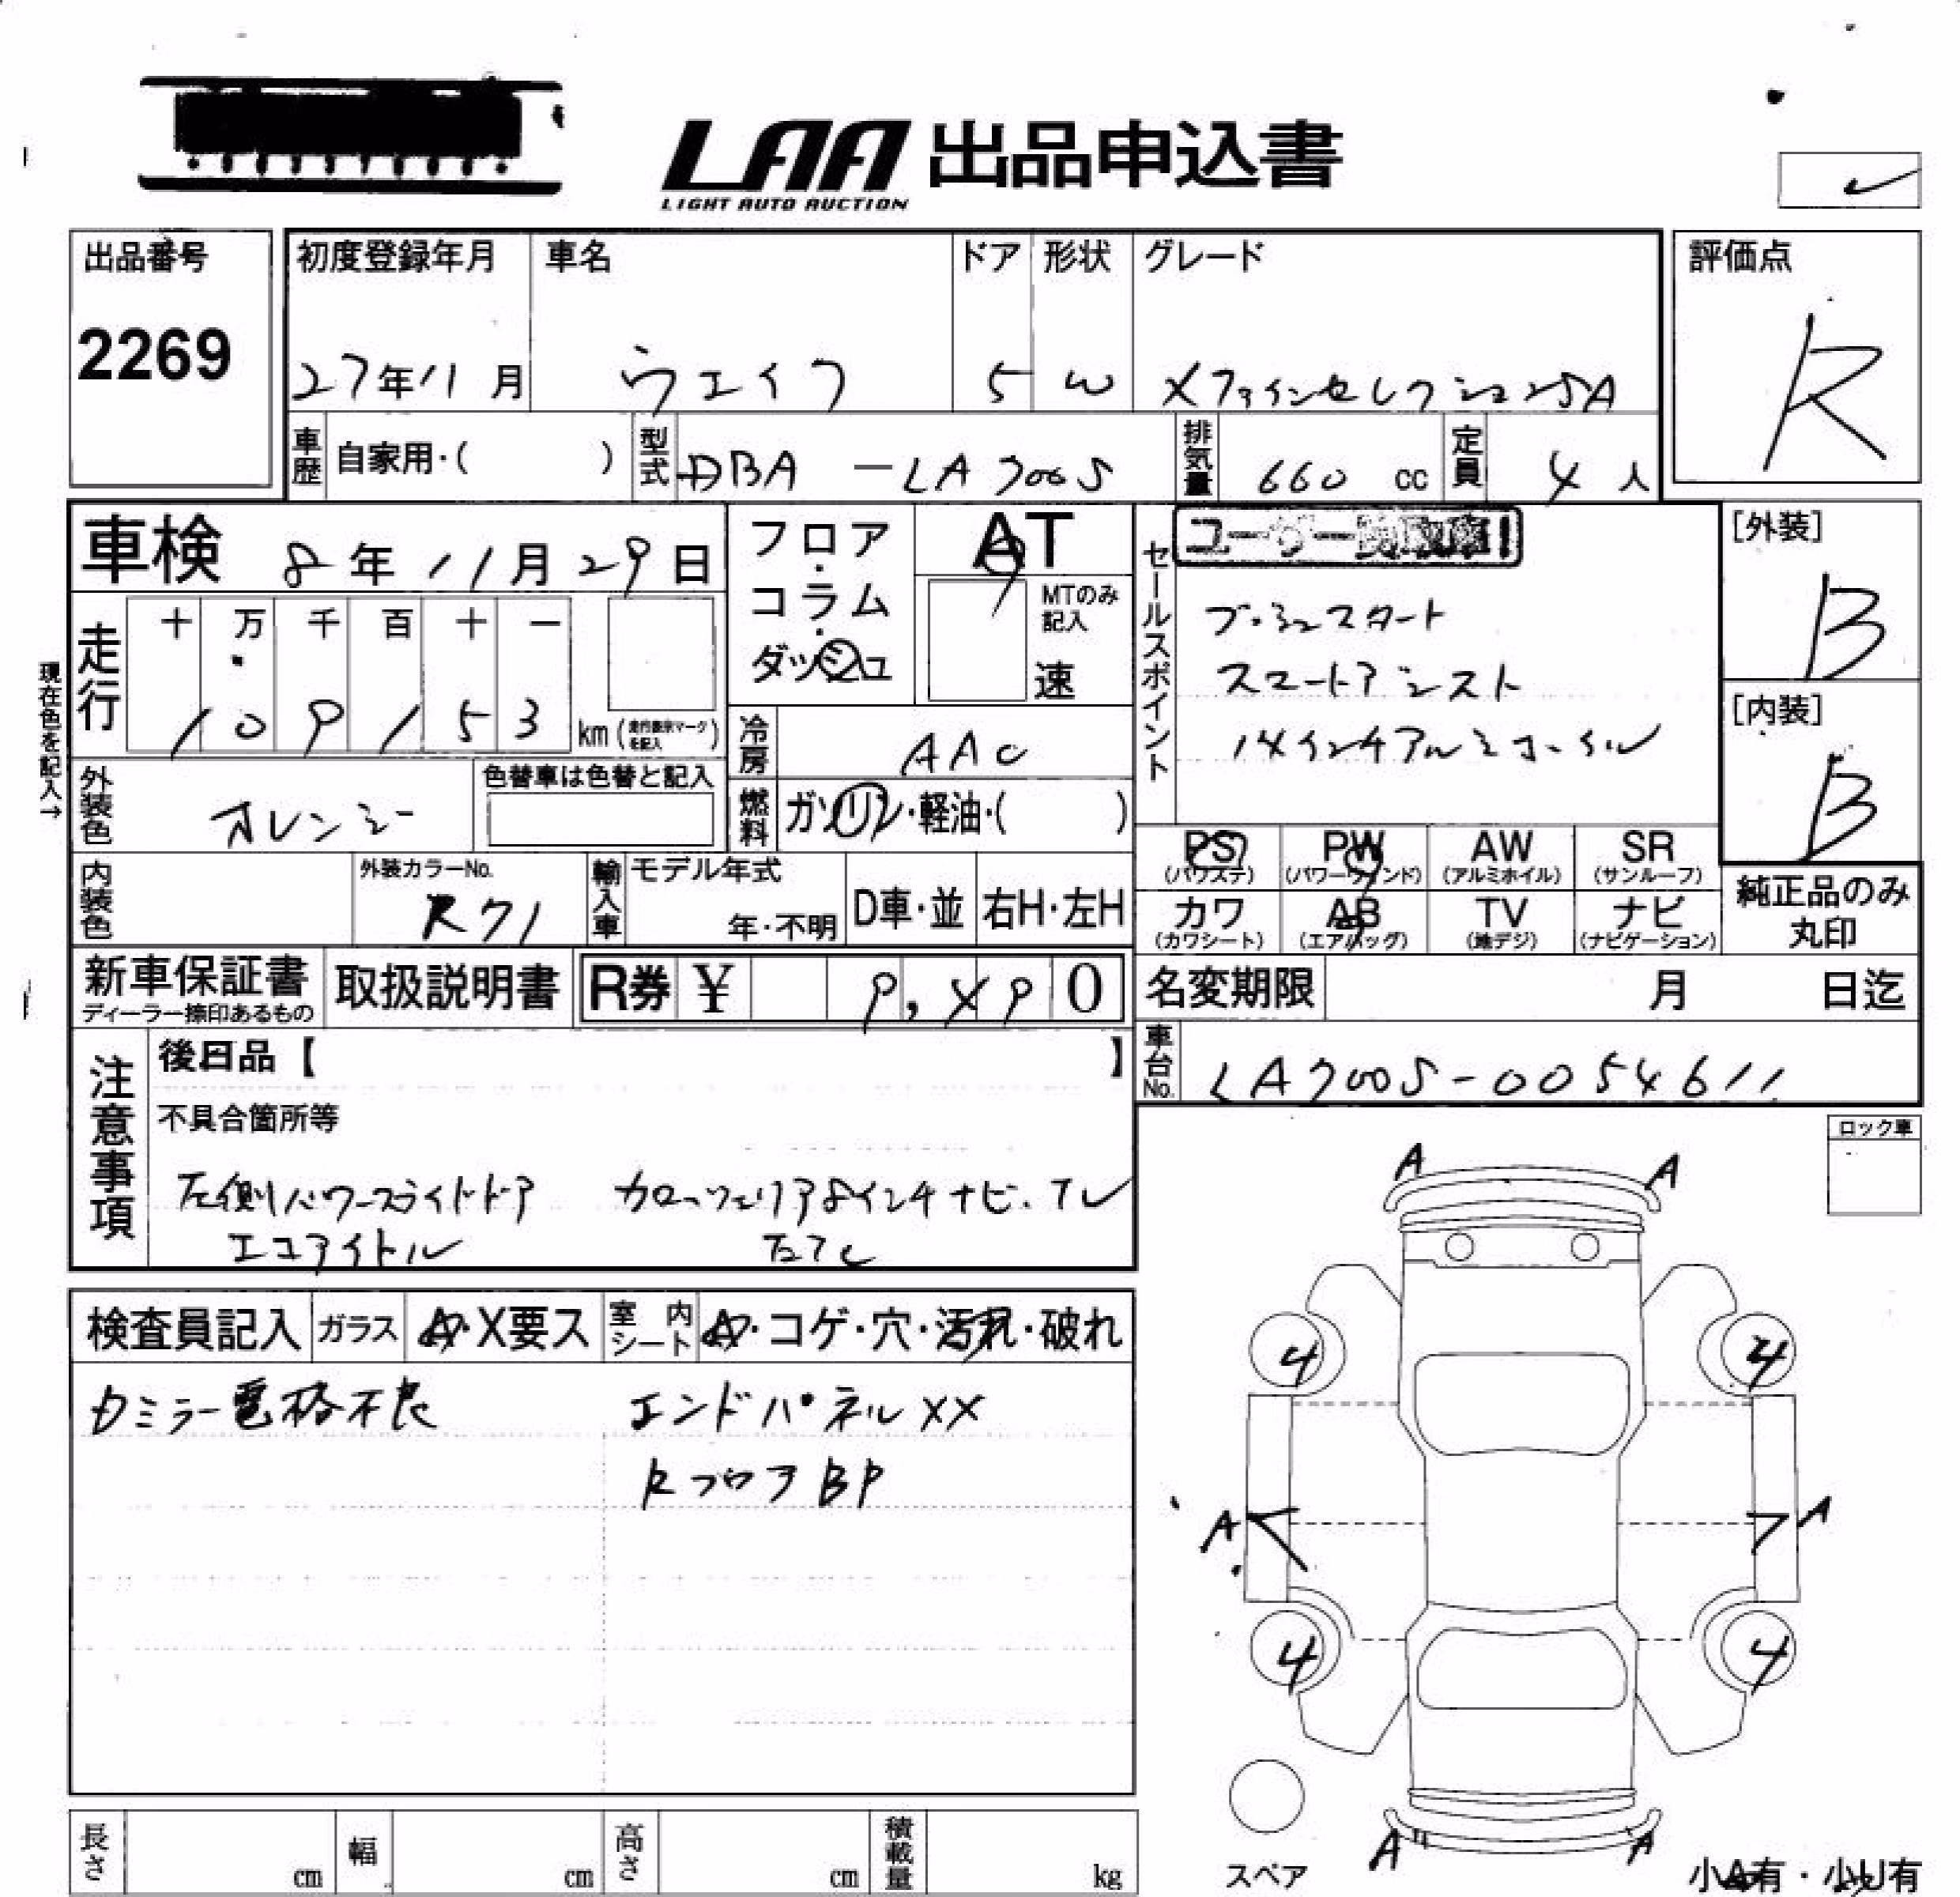 LAA 出品申込書
LIGHT AUTO AUCTION
出品番号
2269
初度登録年月
27年11月
車名
ウェイク
ドア
5
形状
W
グレード
XファインセレクションSA
評価点
R
車歴
自家用・( )
型式
DBA-LA700S
排気量
660 cc
定員
4人
車検
8年11月29日
フロア・コラム・ダッシュ
AT
MTのみ記入
速
セールスポイント
ユーザー買取車!!
プッシュスタート
スマートアシスト
14インチアルミホイル
[外装]
B
[内装]
B
現在色を記入→
走行
十 万 千 百 十 一
109153
km(走行表示マークを記入)
冷房
AAC
燃料
ガソリン・軽油・( )
外装色
オレンジー
色替車は色替と記入
内装色
外装カラーNo.
R71
輸入車
モデル年式
年・不明
D車・並
右H・左H
PS
(パワステ)
PW
(パワーウィンド)
AW
(アルミホイル)
SR
(サンルーフ)
カワ
(カワシート)
AB
(エアバッグ)
TV
(地デジ)
ナビ
(ナビゲーション)
純正品のみ
丸印
新車保証書
ディーラー捺印あるもの
取扱説明書
R券 ¥ 9,490
名変期限
月 日迄
車台No.
LA700S-0054611
注意事項
後日品【 】
不具合箇所等
左側パワースライドドア
エコアイドル
カロッツェリア8インチナビ.TV
ETC
ロック車
検査員記入
ガラス
A・X要ス
室内シート
A・コゲ・穴・汚れ・破れ
カミラー電格不良
エンドパネルXX
RフロアBP
A
A
4
4
A
A
4
4
A
A
スペア
小A有・小U有
長さ
cm
幅
cm
高さ
cm
積載量
kg